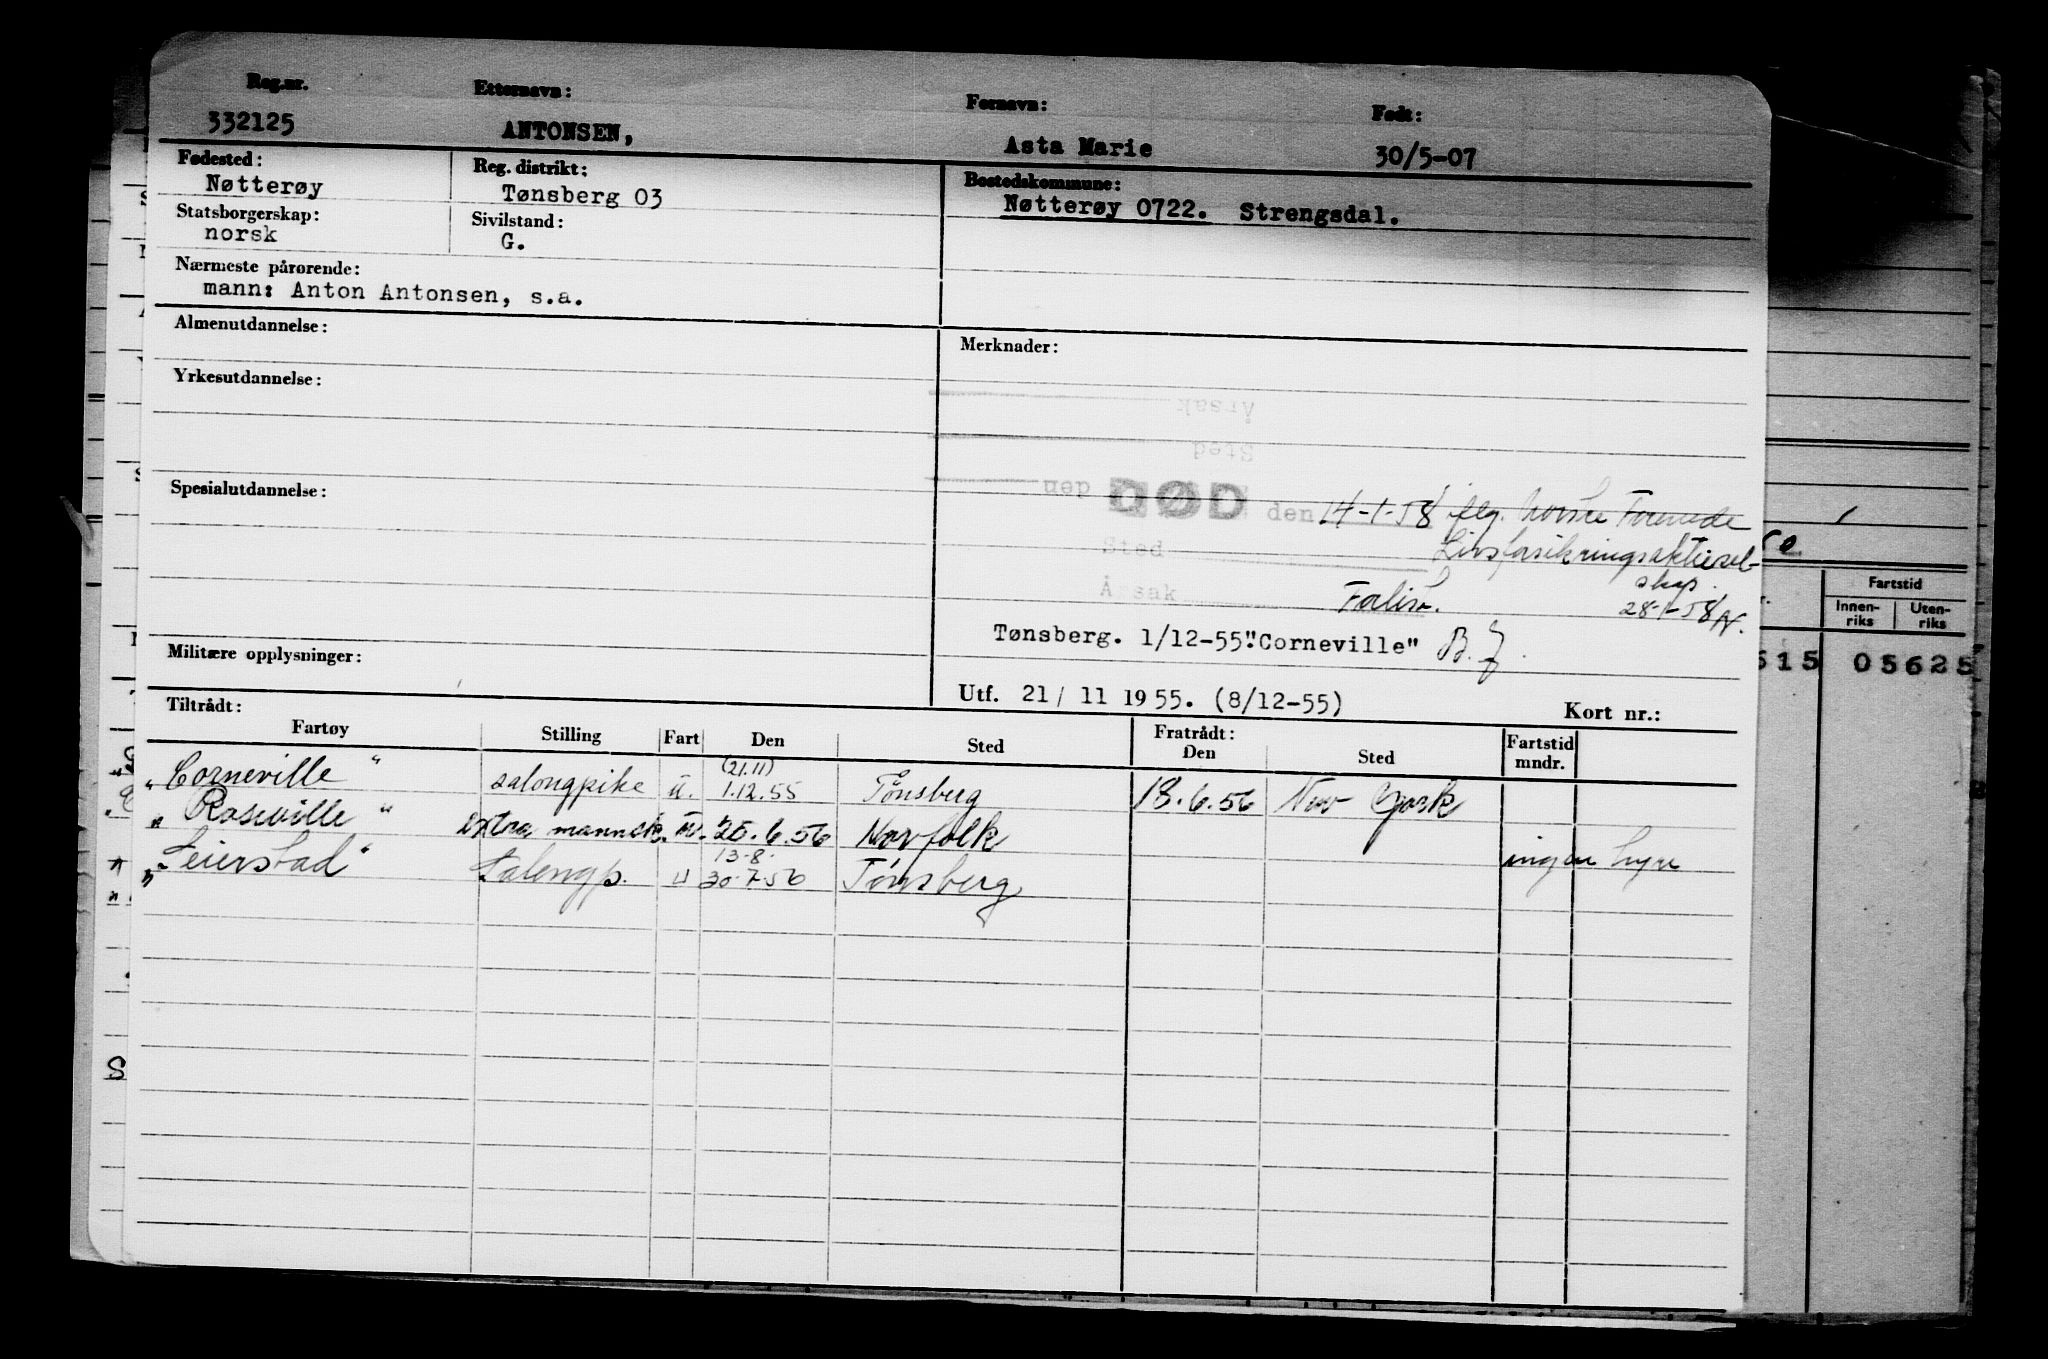 Reg.nr. Etternavn: Fornavn: Født:
332125 ANTONSEN, Asta Marie 30/5-07
Fødested: Reg. distrikt: Bostedskommune:
Nøtterøy Tønsberg 03 Nøtterøy 0722. Strengsdal.
Statsborgerskap: Sivilstand:
norsk G.
Nærmeste pårørende:
mann: Anton Antonsen, s.a.
Almenutdannelse: Merknader:
Yrkesutdannelse:
Årsak
Sted
den
Spesialutdannelse: DØD den 14-1-58 flg. Norske Forenede
Sted Livsforsikringsaktiesel-
skap.
Årsak 28-1-58
Tønsberg. 1/12-55."Corneville"
Militære opplysninger:
Utf. 21/ 11 1955. (8/12-55) Kort nr.:
Tiltrådt: Fratrådt:
Fartøy Stilling Fart Den Sted Den Sted Fartstid mndr.
(21.11)
"Corneville" salongpike u. 1.12.55 Tønsberg 18.6.56 New York
"Roseville" extra mannsk. 25.6.56 Norfolk ingen hyre
13-8-
"Leierstad" Salongp. u 30-7-56 Tønsberg
Fartstid
Innen-riks Uten-riks
515 05625
S